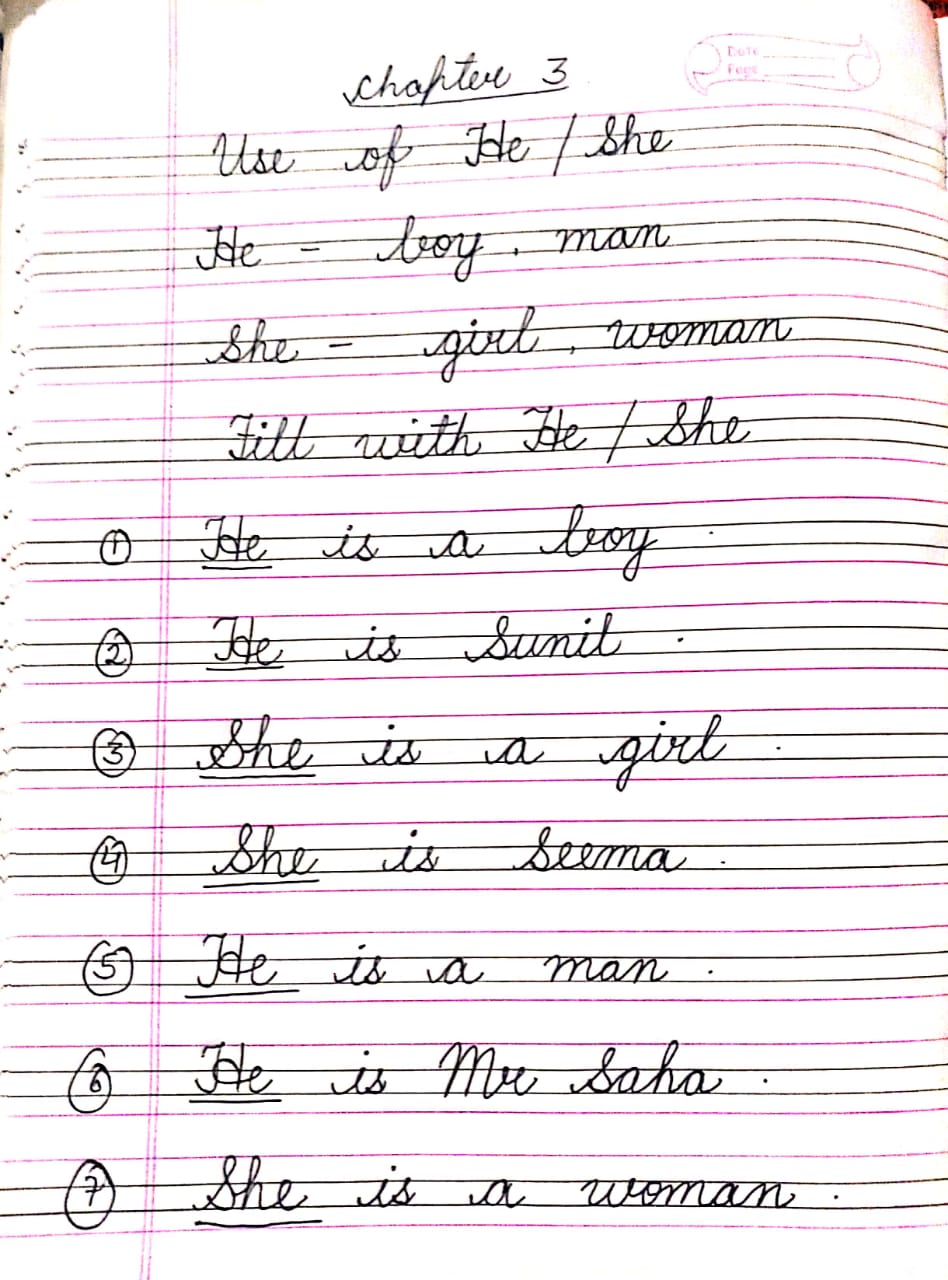 Date
Page
Chapter 3
Use of He / She
He - boy, man
She - girl, woman
Fill with He / She
① He is a boy.
② He is Sunil.
③ She is a girl.
④ She is Seema.
⑤ He is a man.
⑥ He is Mr Saha.
⑦ She is a woman.